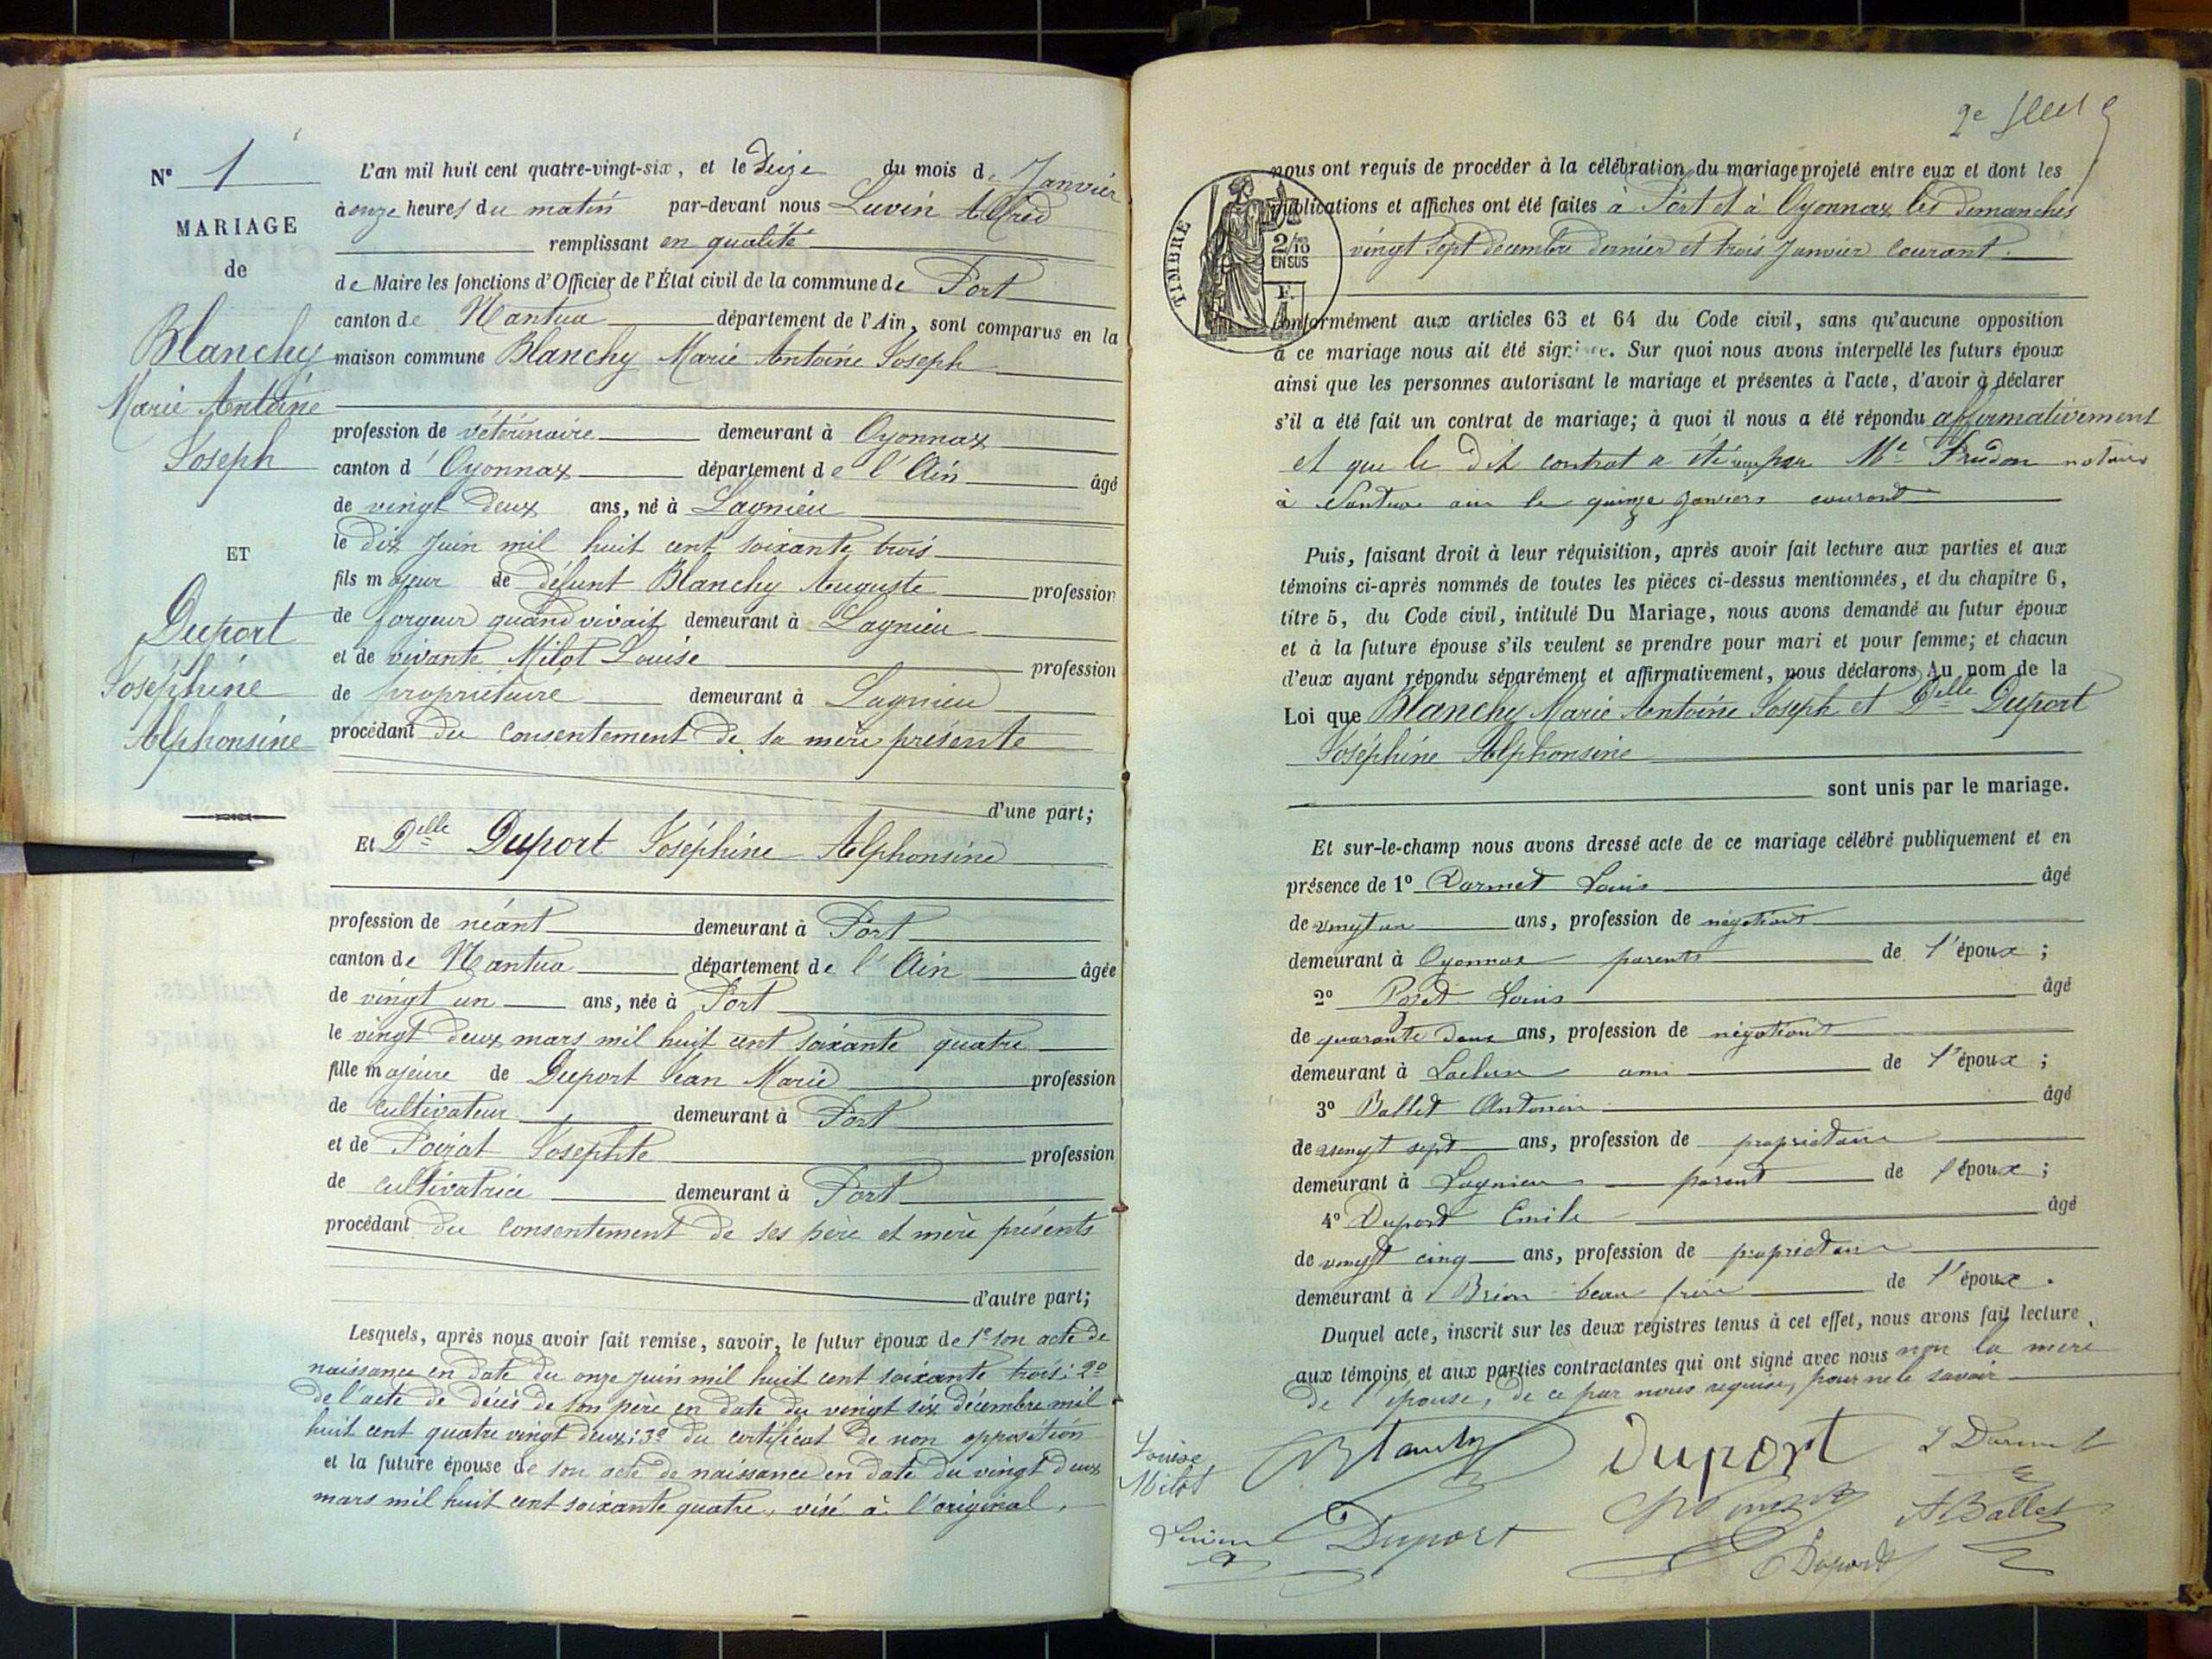 N° 1
MARIAGE
de
Blanchy
Marie Antoine
Joseph
ET
Duport
Joséphine
Alphonsine
L'an mil huit cent quatre-vingt-six, et le Seize du mois de Janvier
à onze heures du matin par-devant nous Luvin Alfred
remplissant en qualité
de Maire les fonctions d'Officier de l'État civil de la commune de Port
canton de Nantua département de l'Ain, sont comparus en la
maison commune Blanchy Marie Antoine Joseph
profession de vétérinaire demeurant à Oyonnax
canton d'Oyonnax département de l'Ain âgé
de vingt deux ans, né à Lagnieu
le dix Juin mil huit cent soixante trois
fils majeur de défunt Blanchy Auguste profession
de forgeur quand vivait demeurant à Lagnieu
et de vivante Milot Louise profession
de propriétaire demeurant à Lagnieu
procédant du consentement de sa mère présente
d'une part;
Et Delle Duport Joséphine Alphonsine
profession de néant demeurant à Port
canton de Nantua département de l'Ain âgée
de vingt un ans, née à Port
le vingt deux mars mil huit cent soixante quatre
fille majeure de Duport Jean Marie profession
de cultivateur demeurant à Port
et de Poizat Josephte profession
de cultivatrice demeurant à Port
procédant du consentement de ses père et mère présents
d'autre part;
Lesquels, après nous avoir fait remise, savoir, le futur époux de 1° son acte de
naissance en date du onze juin mil huit cent soixante trois; 2°
de l'acte de décès de son père en date du vingt six décembre mil
huit cent quatre vingt deux; 3° du certificat de non opposition
et la future épouse de son acte de naissance en date du vingt deux
mars mil huit cent soixante quatre, visé à l'original,
2e
nous ont requis de procéder à la célébration du mariage projeté entre eux et dont les
publications et affiches ont été faites à Port et à Oyonnax les dimanches
vingt sept décembre dernier et trois Janvier courant.
TIMBRE
2/10
EN SUS
F.
1
conformément aux articles 63 et 64 du Code civil, sans qu'aucune opposition
à ce mariage nous ait été signifiée. Sur quoi nous avons interpellé les futurs époux
ainsi que les personnes autorisant le mariage et présentes à l'acte, d'avoir à déclarer
s'il a été fait un contrat de mariage; à quoi il nous a été répondu affirmativement
et que le dit contrat a été reçu par Me Prudon notaire
à Nantua ain le quinze janvier courant
Puis, faisant droit à leur réquisition, après avoir fait lecture aux parties et aux
témoins ci-après nommés de toutes les pièces ci-dessus mentionnées, et du chapitre 6,
titre 5, du Code civil, intitulé Du Mariage, nous avons demandé au futur époux
et à la future épouse s'ils veulent se prendre pour mari et pour femme; et chacun
d'eux ayant répondu séparément et affirmativement, nous déclarons Au nom de la
Loi que Blanchy Marie Antoine Joseph et Delle Duport
Joséphine Alphonsine
sont unis par le mariage.
Et sur-le-champ nous avons dressé acte de ce mariage célébré publiquement et en
présence de 1° Darmet Louis âgé
de vingt un ans, profession de négotiant
demeurant à Oyonnax parents de l'époux;
2° Louis âgé
de quarante deux ans, profession de négotiant
demeurant à ami de l'époux;
3° Ballet Antonin âgé
de vingt sept ans, profession de propriétaire
demeurant à Lagnieu parent de l'époux;
4° Duport Emile âgé
de vingt cinq ans, profession de propriétaire
demeurant à Brion beau frère de l'époux.
Duquel acte, inscrit sur les deux registres tenus à cet effet, nous avons fait lecture
aux témoins et aux parties contractantes qui ont signé avec nous non la mère
de l'épouse, de ce par nous requise, pour ne le savoir
Louise
Milot
Blanchy
Duport
L Darmet
Luvin
Duport
A Ballet
E Duport